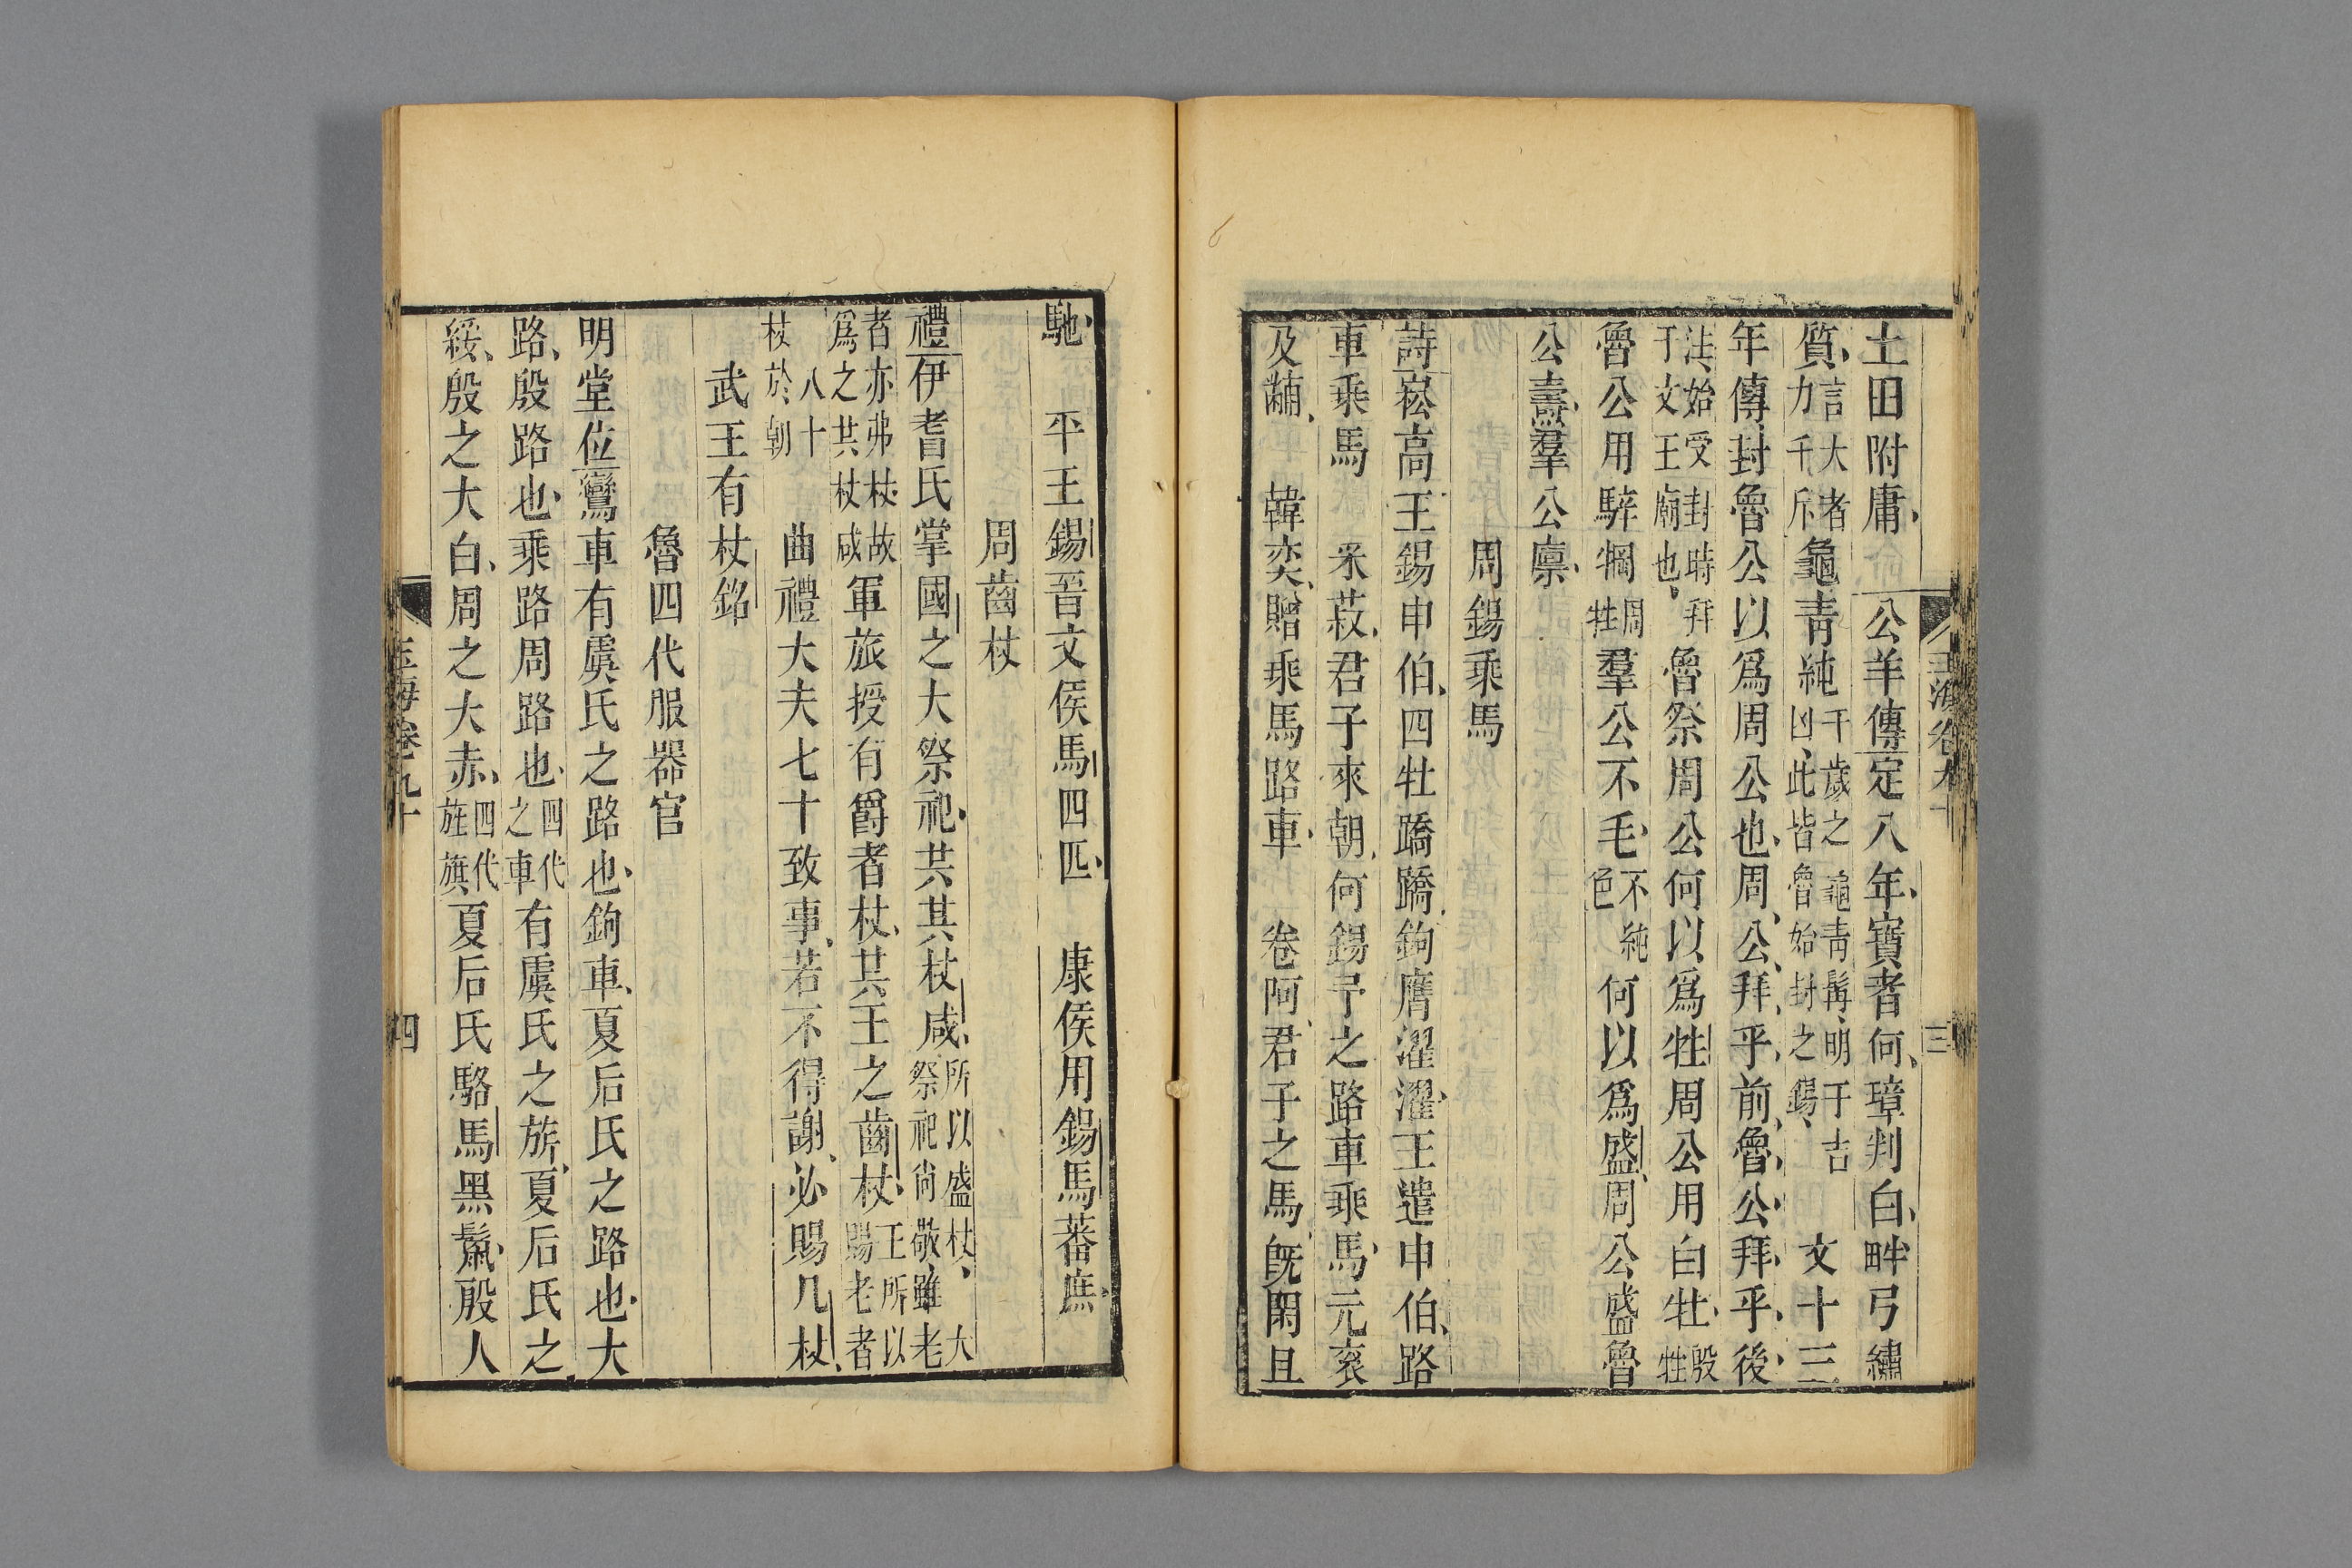 玉海卷九十
三
土田附庸 公羊傳定八年寶者何璋判白畔弓繡
質言大者力千斤龜靑純千歲之龜靑髯明于吉凶此皆魯始封之錫 文十三
年傳封魯公以爲周公也周公拜乎前魯公拜乎後
注始受封時拜于文王廟也魯祭周公何以爲牲周公用白牡殷牲
魯公用騂犅周牲羣公不毛不純色何以爲盛周公盛魯
公燾羣公廩
周錫乘馬
詩崧高王錫申伯四牡蹻蹻鉤膺濯濯王遣申伯路
車乘馬 采菽君子來朝何錫予之路車乘馬元袞
及黼 韓奕贈乘馬路車 卷阿君子之馬旣閑且
馳 平王錫晉文侯馬四匹 康侯用錫馬蕃庶
周齒杖
禮伊耆氏掌國之大祭祀共其杖咸所以盛杖祭祀尙敬雖大老
者亦弗杖故爲之共杖咸軍旅授有爵者杖共王之齒杖王所以賜老者
八十杖於朝 曲禮大夫七十致事若不得謝必賜几杖
武王有杖銘
魯四代服器官
明堂位鸞車有虞氏之路也鉤車夏后氏之路也大
路殷路也乘路周路也四代之車有虞氏之旂夏后氏之
綏殷之大白周之大赤四代旌旗夏后氏駱馬黑鬣殷人
玉海卷九十
四